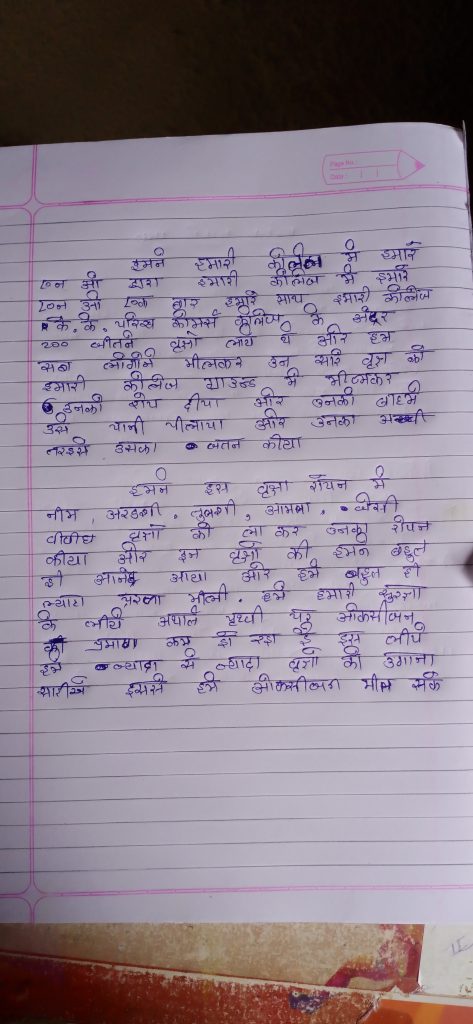 Page No.
Date :
हमने हमारी कॉलेज में हमारे
द्वारा हमारी कॉलेज में हमारे
एक बार हमारे साथ हमारी कॉलेज
के. के. परिख कोमर्स कॉलेज के अंदर
200 जीतने वृक्षो लाये थे और हम
सबा लोगोने मीलकर उन सारे वृक्ष को
हमारी कॉलेज ग्राउन्ड में मीलकर
इनको रोप दीया और उनको बादमे
उसे पानी पीलाया और उनका अच्छी
तरहसे उसका जतन कीया
हमने इस वृक्ष रोपन में
नीम, अरडुशी, तुलशी, आमला, जैसी
वीवीध वृक्षो को ला कर उनका रोपन
कीया और इन वृक्षो को हमने बहुत
ही आनंद आया और हमे बहुत ही
हमे हमारी सुरक्षा
के लीये अर्थात पृथ्वी पर ओकसीजन
का प्रमाण कम हो रहा है इस लीये
हमे ज्यादा से ज्यादा वृक्षो को उगाना
चाहीये इससे हमे ओकसीजन मील सके